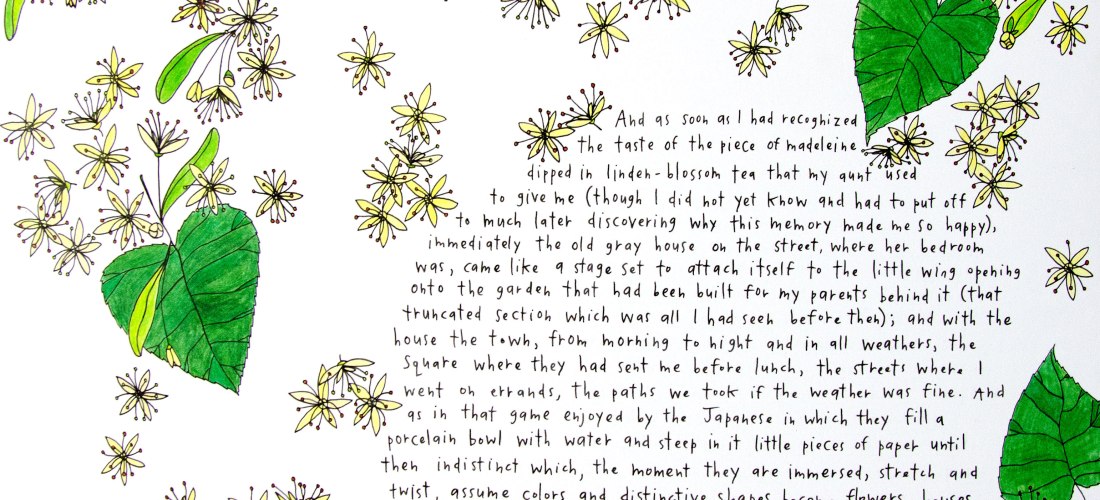 And as soon as I had recognized
the taste of the piece of madeleine
dipped in linden-blossom tea that my aunt used
to give me (though I did not yet know and had to put off
to much later discovering why this memory made me so happy),
immediately the old gray house on the street, where her bedroom
was, came like a stage set to attach itself to the little wing opening
onto the garden that had been built for my parents behind it (that
truncated section which was all I had seen before then); and with the
house the town, from morning to night and in all weathers, the
Square where they had sent me before lunch, the streets where I
went on errands, the paths we took if the weather was fine. And
as in that game enjoyed by the Japanese in which they fill a
porcelain bowl with water and steep in it little pieces of paper until
then indistinct which, the moment they are immersed, stretch and
twist, assume colors and distinctive shapes, flowers, houses